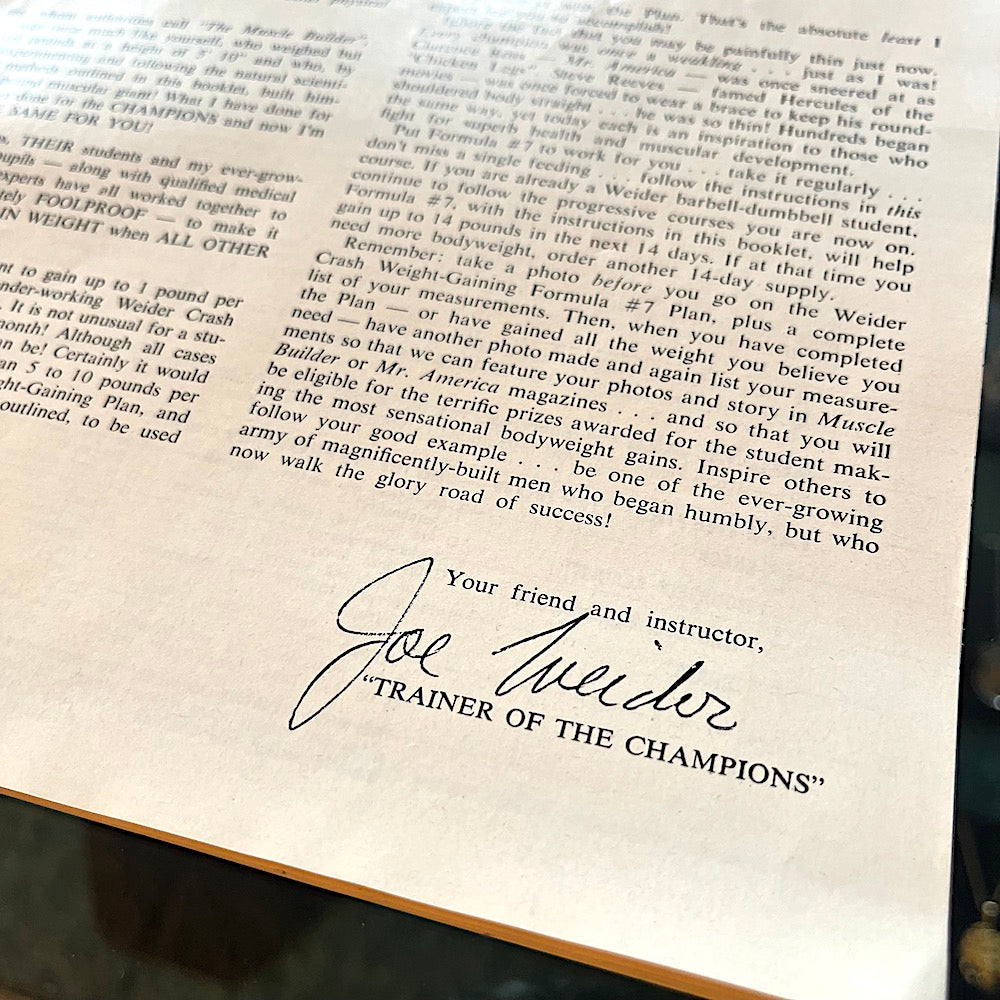 when authorities call "The Muscle Builder"
much like yourself, who weighed but
pounds at a height of 5' 10" and who, by
and following the natural scienti-
methods outlined in this booklet, built him-
muscular giant! What I have done for
done for the CHAMPIONS and now I'm
SAME FOR YOU!
THEIR students and my ever-grow-
pupils — along with qualified medical
experts have all worked together to
FOOLPROOF — to make it
IN WEIGHT when ALL OTHER
to gain up to 1 pound per
Weider Crash
. It is not unusual for a stu-
month! Although all cases
be! Certainly it would
5 to 10 pounds per
Plan, and
outlined, to be used
the Plan. That's the absolute least I
accomplish!
Ignore the fact that you may be painfully thin just now.
Every champion was once a weakling . . . just as I was!
Clarence Ross — Mr. America — was once sneered at as
"Chicken Legs". Steve Reeves — famed Hercules of the
movies — was once forced to wear a brace to keep his round-
shouldered body straight . . . he was so thin! Hundreds began
the same way, yet today each is an inspiration to those who
fight for superb health and muscular development.
Put Formula #7 to work for you . . . take it regularly . . .
don't miss a single feeding . . . follow the instructions in this
course. If you are already a Weider barbell-dumbbell student,
continue to follow the progressive courses you are now on.
Formula #7, with the instructions in this booklet, will help
gain up to 14 pounds in the next 14 days. If at that time you
need more bodyweight, order another 14-day supply.
Remember: take a photo before you go on the Weider
Crash Weight-Gaining Formula #7 Plan, plus a complete
list of your measurements. Then, when you have completed
the Plan — or have gained all the weight you believe you
need — have another photo made and again list your measure-
ments so that we can feature your photos and story in Muscle
Builder or Mr. America magazines . . . and so that you will
be eligible for the terrific prizes awarded for the student mak-
ing the most sensational bodyweight gains. Inspire others to
follow your good example . . . be one of the ever-growing
army of magnificently-built men who began humbly, but who
now walk the glory road of success!
Your friend and instructor,
Joe Weider
"TRAINER OF THE CHAMPIONS"